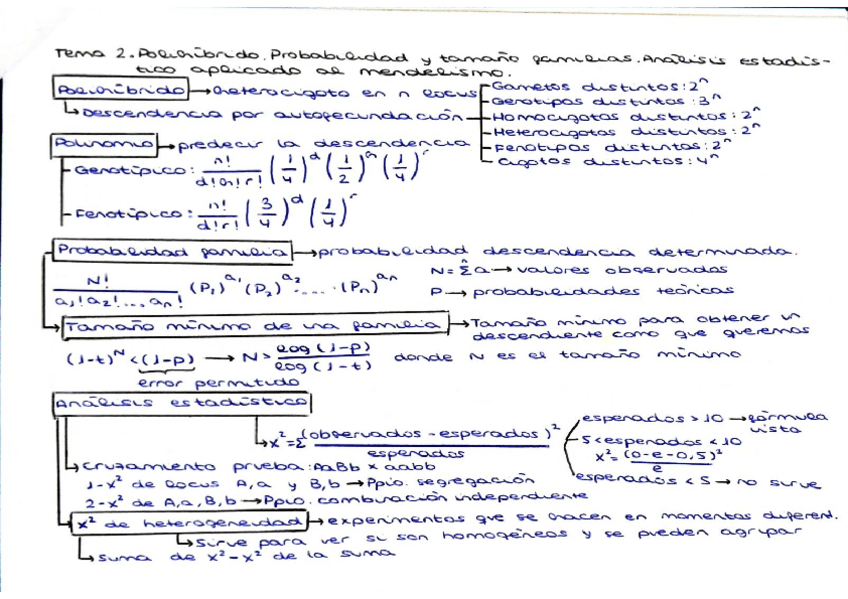 Tema 2. Polihíbrido. Probabilidad y tamaño familias. Análisis estadís-
tico aplicado al mendelismo.
Polihíbrido → heterocigoto en n locus
↳ Descendencia por autofecundación
Gametos distintos: 2^n
Genotipos distintos: 3^n
Homocigotos distintos: 2^n
Heterocigotos distintos: 2^n
Fenotipos distintos: 2^n
Cigotos distintos: 4^n
Polinomio → predecir la descendencia
Genotípico: n!/(d!a!r!) (1/4)^d (1/2)^a (1/4)^r
Fenotípico: n!/(d!r!) (3/4)^d (1/4)^r
Probabilidad familia → probabilidad descendencia determinada.
N!/(a1!a2!...an!) (P1)^a1 (P2)^a2 ..... (Pn)^an
N=Σ^n a → valores observados
P → probabilidades teóricas
Tamaño mínimo de una familia → Tamaño mínimo para obtener un
descendiente como que queremos
(1-t)^N < (1-p) → N > log(1-p)/log(1-t) donde N es el tamaño mínimo
error permitido
Análisis estadístico
↳ x²=Σ (observados - esperados)²/esperados
esperados > 10 → fórmula
vista
5 < esperados < 10
x² = (o-e-0,5)²/e
esperados < 5 → no sirve
↳ cruzamiento prueba: AaBb x aabb
1-x² de locus A,a y B,b → Ppio. segregación
2-x² de A,a,B,b → Ppio. combinación independiente
x² de heterogeneidad → experimentos que se hacen en momentos diferent.
↳ Sirve para ver si son homogéneos y se pueden agrupar
↳ Suma de x² - x² de la suma